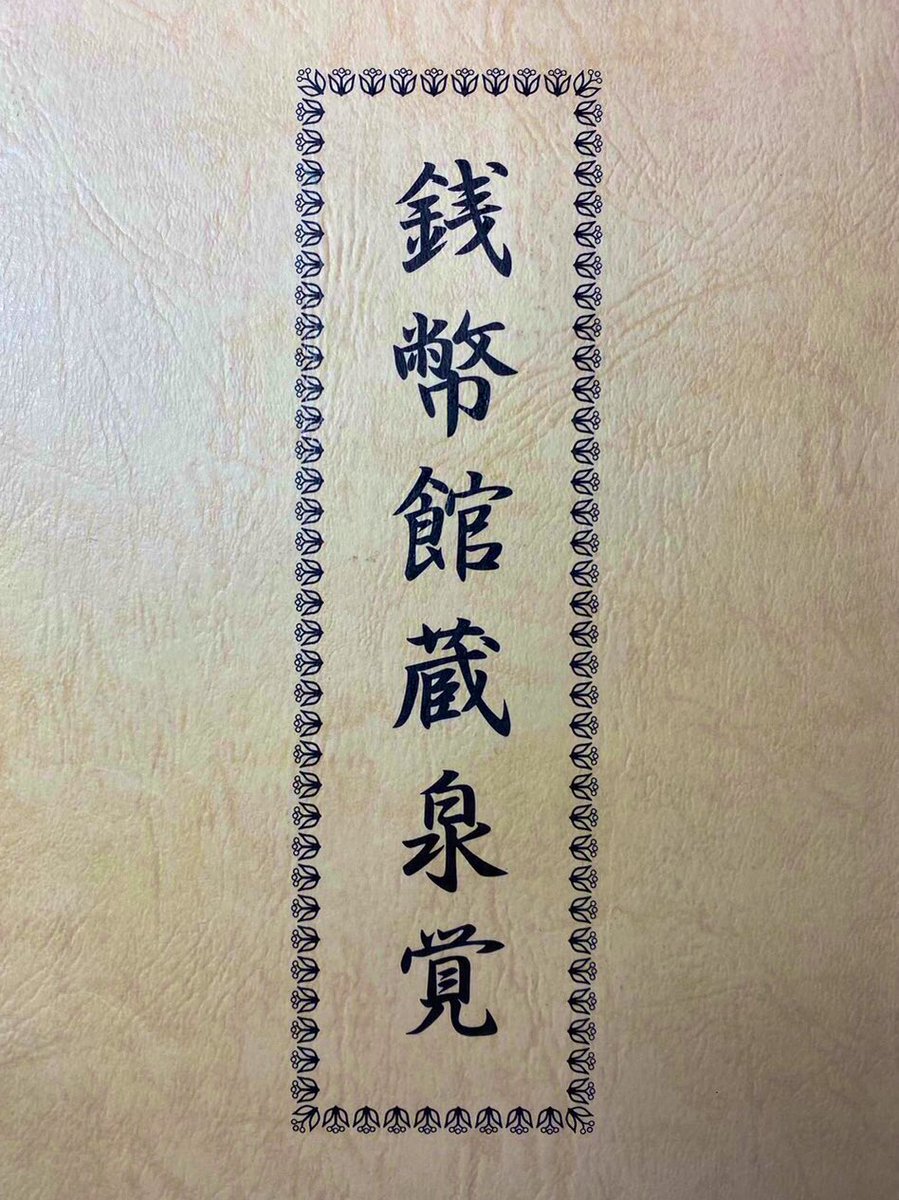 銭幣館蔵泉覚